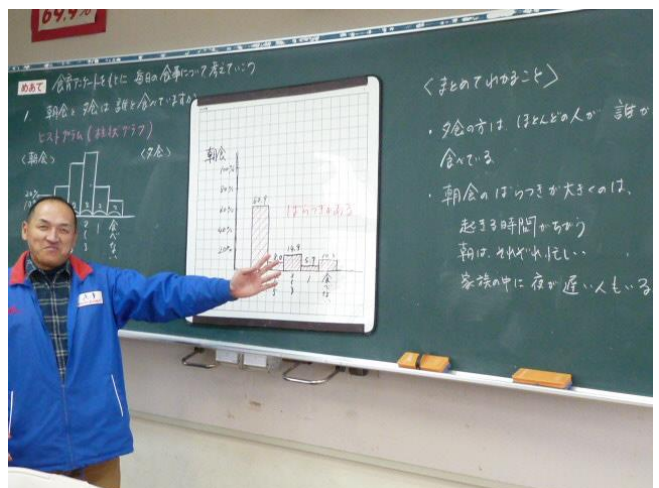 64.4%
めあて 食育アンケートをもとに 毎日の食事について考えていこう
1. 朝食と夕食は誰と食べていますか
ヒストグラム(柱状グラフ)
〈朝食〉
〈夕食〉
食べない
朝食
100%
80%
60%
40%
20%
ばらつきがある
14.9
5.9
2
1
食べない
〈まとめてわかること〉
・夕食の方は、ほとんどの人が 誰か
食べている
・朝食のばらつきが大きくのは、
起きる時間がちがう
朝は、それぞれ忙しい
家族の中に夜が遅い人もいる